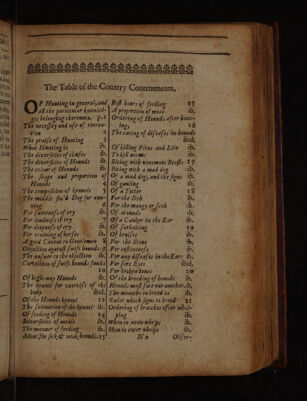 The Table of the Country Contentments.
OF Hunting in general, and
all the particular knowled-
ges belonging thereunto. p.1
The necessity and use of recrea-
tion 2
The praise of Hunting 3
What Hunting is ib.
The diversities of chases ib.
The diversities of Hounds ib.
The colour of Hounds ib.
The shape and proportion of
Hounds 4
The composition of kennels 5
The middle siz'd Dog for cun-
ning 6
For sweetness of cry ib.
For loudness of cry 7
For deepness of cry ib.
For training of horses ib.
A good Caveat to Gentlemen 8
Objection against swift hounds 9
The answer to the objection ib.
Correction of swift hounds faults
10
Of high-way Hounds ib.
The kennel for exercise of the
body. ibid.
Of the Hounds kennel 12
The scituation of the kennel ib.
Of feeding of Hounds 14
Diversities of meals ib.
The manner of feeding ib.
Meat for sick & weak hounds. 15
Best hours of feeding 15
A proportion of meat ib.
Ordering of Hounds after hunt-
ing, 16
The curing of diseases in hounds
ibid.
Of killing Fleas and Lice ib.
To kill worms ib.
Biting with venemous Beasts 17
Biting with a mad dog ib.
Of a mad dog, and the signs ib.
Of gauling ib.
Of a Tetter 18
For the Itch ib.
For the mangy or scab ib.
Of wounds ib.
Of a Canker in the Ear ib.
Of surbaiting 19
Of bruises ib.
For the Stone ib.
For costiveness ib.
For any diseases in the Ears ib.
For sore Eyes ibid.
For broken bones 20
Of the breeding of hounds ib.
Hounds must love one another. ib.
The mouths to breed in ib.
Under which signs to breed 21
Ordering of braches after whel-
ping ib.
When to wean whelps ib.
How to enter whelps ib.
N n Obser-